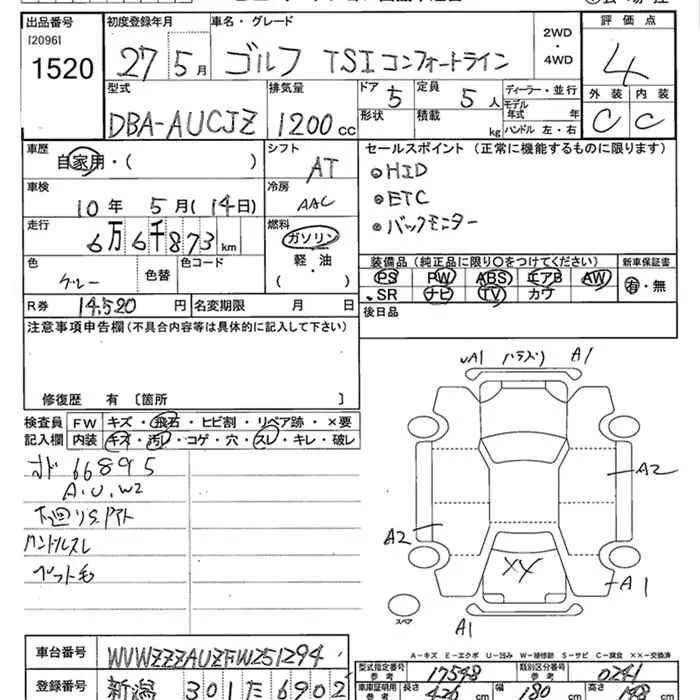 出品番号 初度登録年月 車名・グレード 2WD・4WD 評価点
[2096]
1520 27 5月 ゴルフ TSIコンフォートライン 4
型式 排気量 ドア 5 定員 5人 ディーラー・並行 外装 内装
DBA-AUCJZ 1200cc 形状 積載 kg モデル年式 年 C C
ハンドル 左・右
車歴 自家用・( ) シフト AT セールスポイント(正常に機能するものに限ります)
●HID
車検 10年 5月(14日) 冷房 AAC ●ETC
●バックモニター
走行 6万6千873km 燃料 ガソリン
軽・油
( ・ )
色 グレー 色替 色コード 装備品(純正品に限り○をつけてください) 新車保証書
PS PW ABS エアB AW 有・無
SR ナビ TV カワ
R券 14,520円 名変期限 月 日 後日品
注意事項申告欄(不具合内容等は具体的に記入して下さい)
修復歴 有 〔箇所 〕
検査員 FW キズ・飛石・ヒビ割・リペア跡・×要
記入欄 内装 キズ・汚レ・コゲ・穴・スレ・キレ・破レ
オド 66895
A.U.W2
ハンドルスレ
ペット毛
A1 A1
A2
A2
XY
A1
A1
スペア
A-キズ E-エクボ U-凹み W-補修跡 S-サビ C-腐食 ××-交換済
車台番号 WVWZZZAUZFW251294 型式指定番号 参考 17548 類別区分番号 参考 0241
登録番号 新潟 301 た 6902 車庫証明用 参考 長さ 426cm 幅 180cm 高さ 148cm